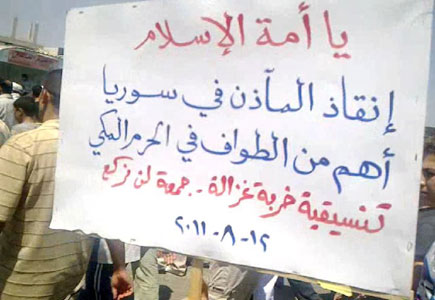 يا أمة الإسلام
إنقاذ المآذن في سوريا
أهم من الطواف في الحرم المكي
تنسيقية خربة غزالة - جمعة لن نركع
١٢-٨-٢٠١١